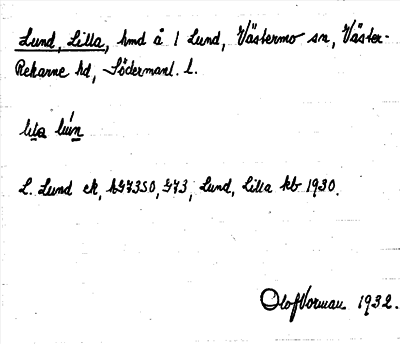 Lund, Lilla, hmd å 1 Lund, Västermo sn, Väster-
Rekarne hd, Södermanl. l.
lila lún
L. Lund ek, bG7350, G73, Lund, Lilla kb 1930.
Olof Vorman 1932.